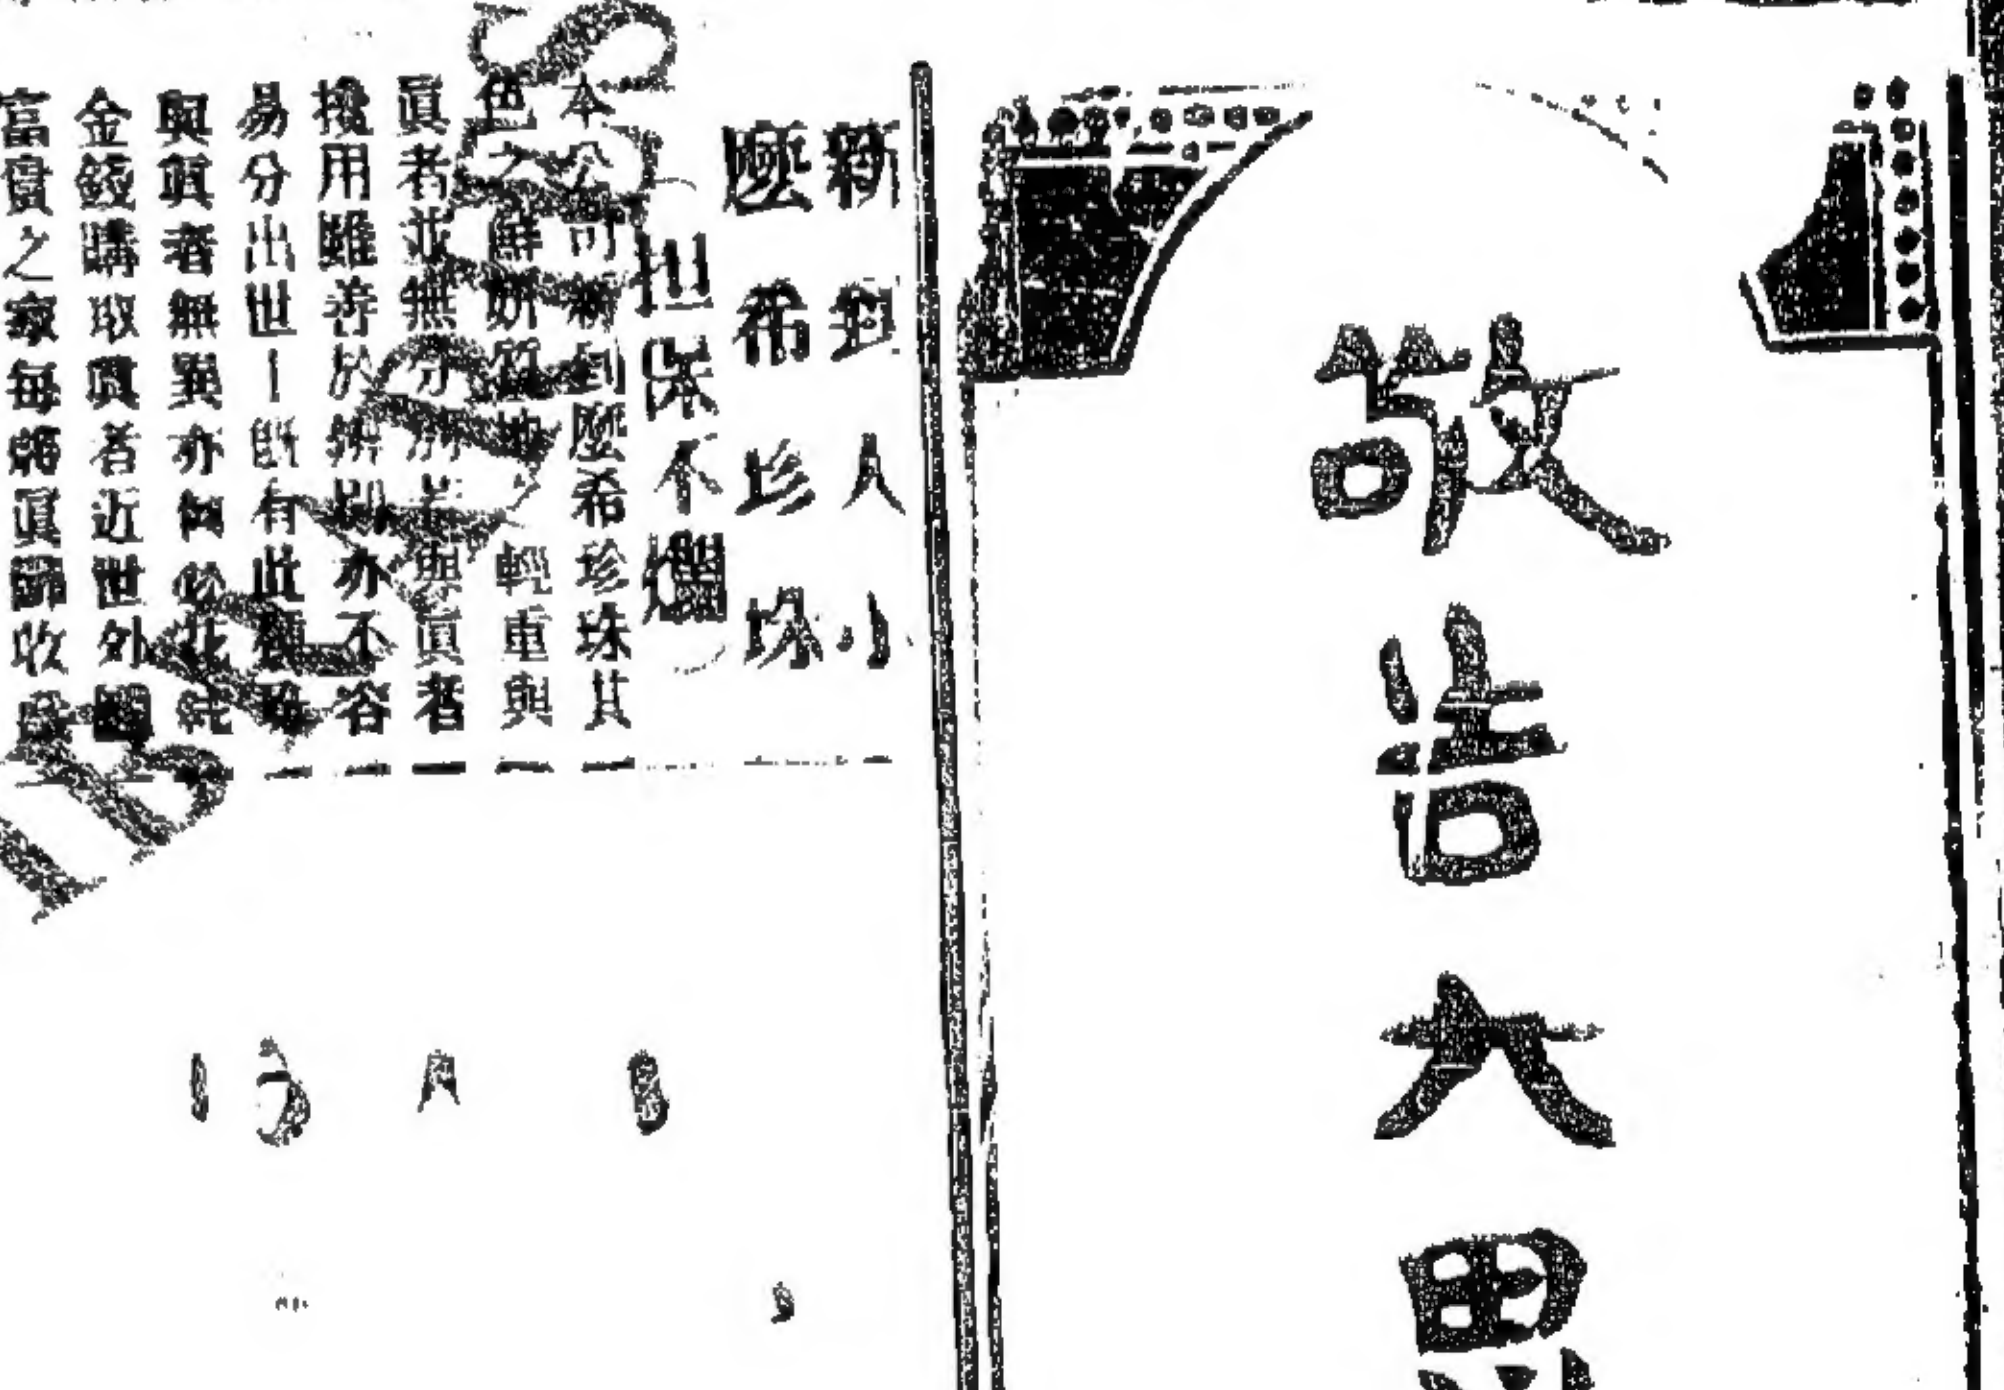 敬告大
新到人小
麼希珍珠
担保不爛
本公司新到麼希珍珠其
色之鮮妍質地輕重與
眞者並無分別若與眞者
攙用雖善於辨別亦不容
易分出世上既有此
與眞者無異亦何必花純
金錢購取眞者近世外國
富貴之家每將眞歸收